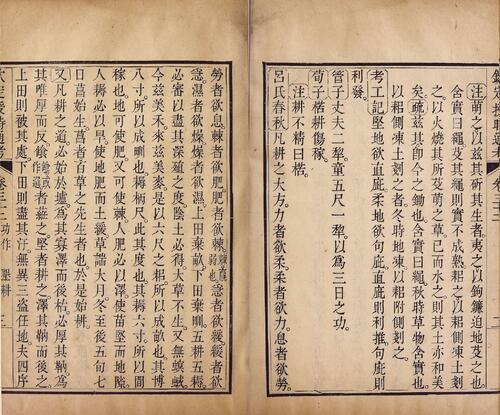 欽定授時通考 卷三十二 二
注萌之以茲其斫其生者夷之以鉤鐮迫地芟之也
含實曰繩芟其繩則實不成熟耜之以耜側凍土剗
之以火燒其所芟萌之草已而水之則其土亦和美
矣疏茲其卽今之鋤也含實曰繩秋時草物含實也
以耜側凍土剗之者冬時地凍以耜附側剗之
考工記堅地欲直庛柔地欲句庛直庛則利推句庛則
利發
管子丈夫二犂童五尺一犂以爲三日之功
荀子楛耕傷稼
注耕不精曰楛
呂氏春秋凡耕之大方力者欲柔柔者欲力息者欲勞
勞者欲息棘者欲肥肥者欲棘棘羸弱也急者欲緩緩者欲
急濕者欲燥燥者欲濕上田棄畝下田棄甽五耕五耨
必審以盡其深殖之度陰土必得大草不生又無螟蜮
今茲美禾來茲美麥是以六尺之耜所以成畝也其博
八寸所以成甽也耨柄尺此其度也其耨六寸所以間
稼也地可使肥又可使棘人肥必以澤使苗堅而地隙
人耨必以旱使地肥而土緩草諯大月冬至後五旬七
日菖始生菖者百草之先生者也於是始耕
又凡耕之道必始於壚爲其寡澤而後枯必厚其靹爲
其唯厚而反䭃者莊之堅者耕之澤其靹而後之
上田則被其處下田則盡其汙無與三盜任地夫四序
欽定授時通考 卷三十二 功作 墾耕 三